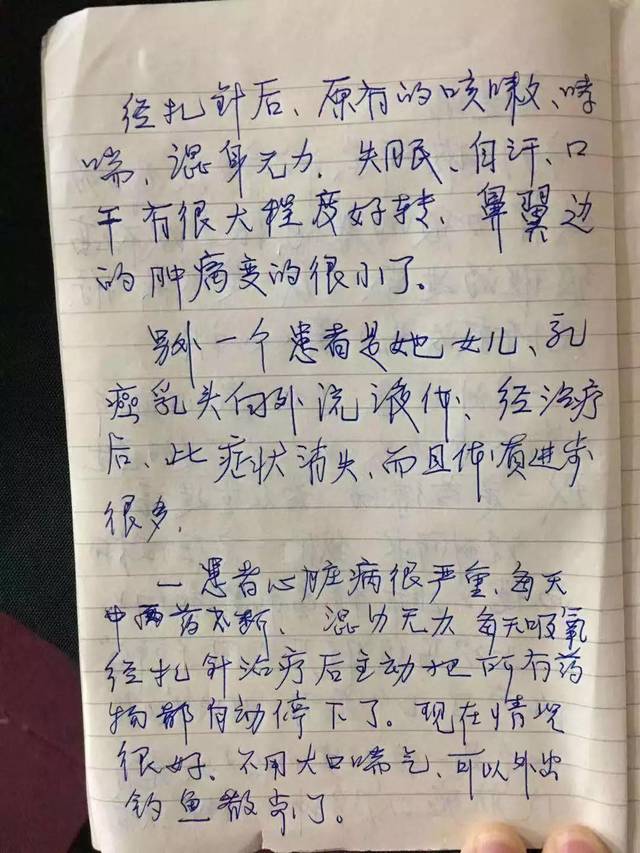 经扎针后、原有的咳嗽、哮
喘、混身无力、失眠、自汗、口
干有很大程度好转、鼻翼边
的肿痛变的很小了。
另外一个患者是她女儿、乳
癌乳头向外流液体、经治疗
后、此症状消失、而且体质进步
很多.
一患者心脏病很严重、每天
中西药不断、混身无力每天吸氧
经扎针治疗后主动把所有药
物都自动停下了。现在情况
很好、不用大口喘气、可以外出
钓鱼散步了。